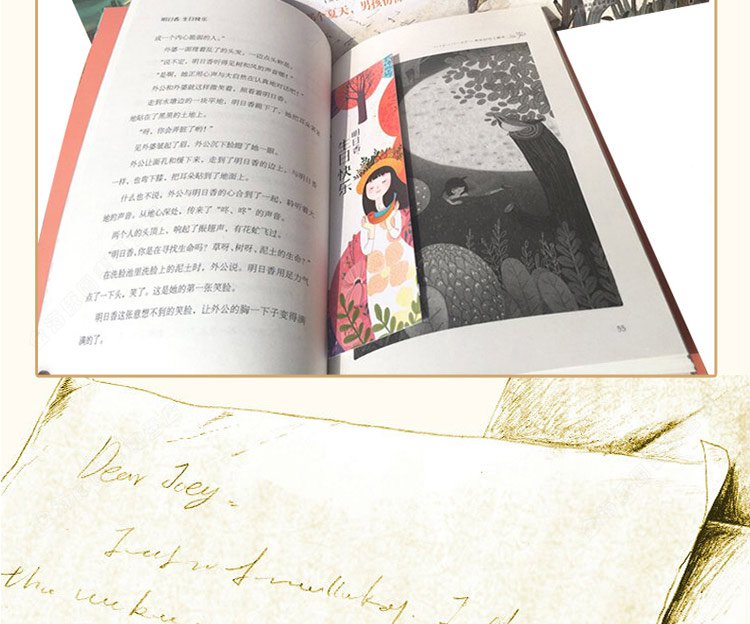 个夏天，男孩仿佛
明日香 生日快乐
成一个内心脆弱的人。”
外婆一面理着乱了的头发，一边点头称是。
“说不定，明日香听得见树和风的声音呢！”
“是啊，她正用心声与大自然在认真地对话吧！”
外公和外婆就这样微笑着，照看着明日香。
走到水塘边的一块平地，明日香跪下了，她把耳朵
地贴在了黑黑的土地上。
“呀，你会弄脏了哟！”
见外婆皱起了眉，外公沉下脸瞪了她一眼。
外公让面孔和缓下来，走到了明日香的边上，与明日香
一样，也弯下膝，把耳朵贴到了地面上。
什么也不说，外公与明日香的心合到了一起，聆听着大
地的声音。从地心深处，传来了“咚、咚”的声音。
两个人的头顶上，响起了振翅声，有花虻飞过。
“明日香，你是在寻找生命吗？草呀、树呀、泥土的生命？”
在洗脸池里洗脸上的泥土时，外公说。明日香用足力气
点了一下头，笑了。这是她的第一张笑脸。
明日香这张意想不到的笑脸，让外公的胸一下子变得满
满的了。
明日香
生日快乐
55
Dear Joey,
the